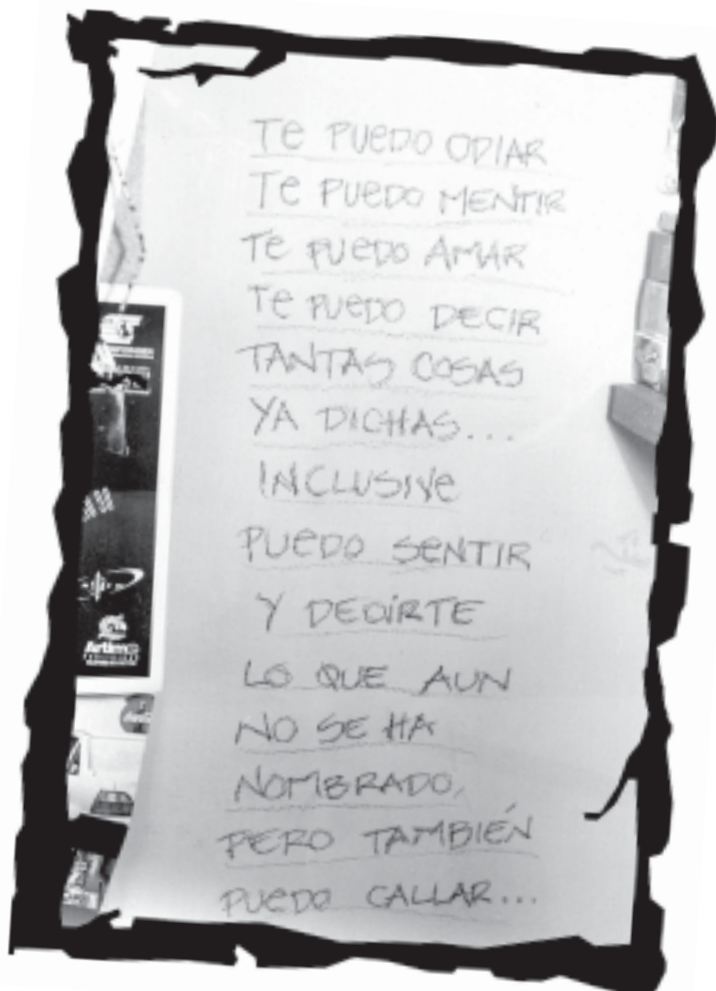 Te PUeDO ODIAR
Te PUeDO MENTIR
Te PUeDO AMAR
Te PUeDO DECIR
TANTAS COSAS
YA DICHAS...
INCLUSIVe
PUeDO SeNTIR
Y DECIRTE
LO QUE AUN
NO SE HA
NOMBRADO,
PERO TAMBIÉN
PUEDO CALLAR...
Artime